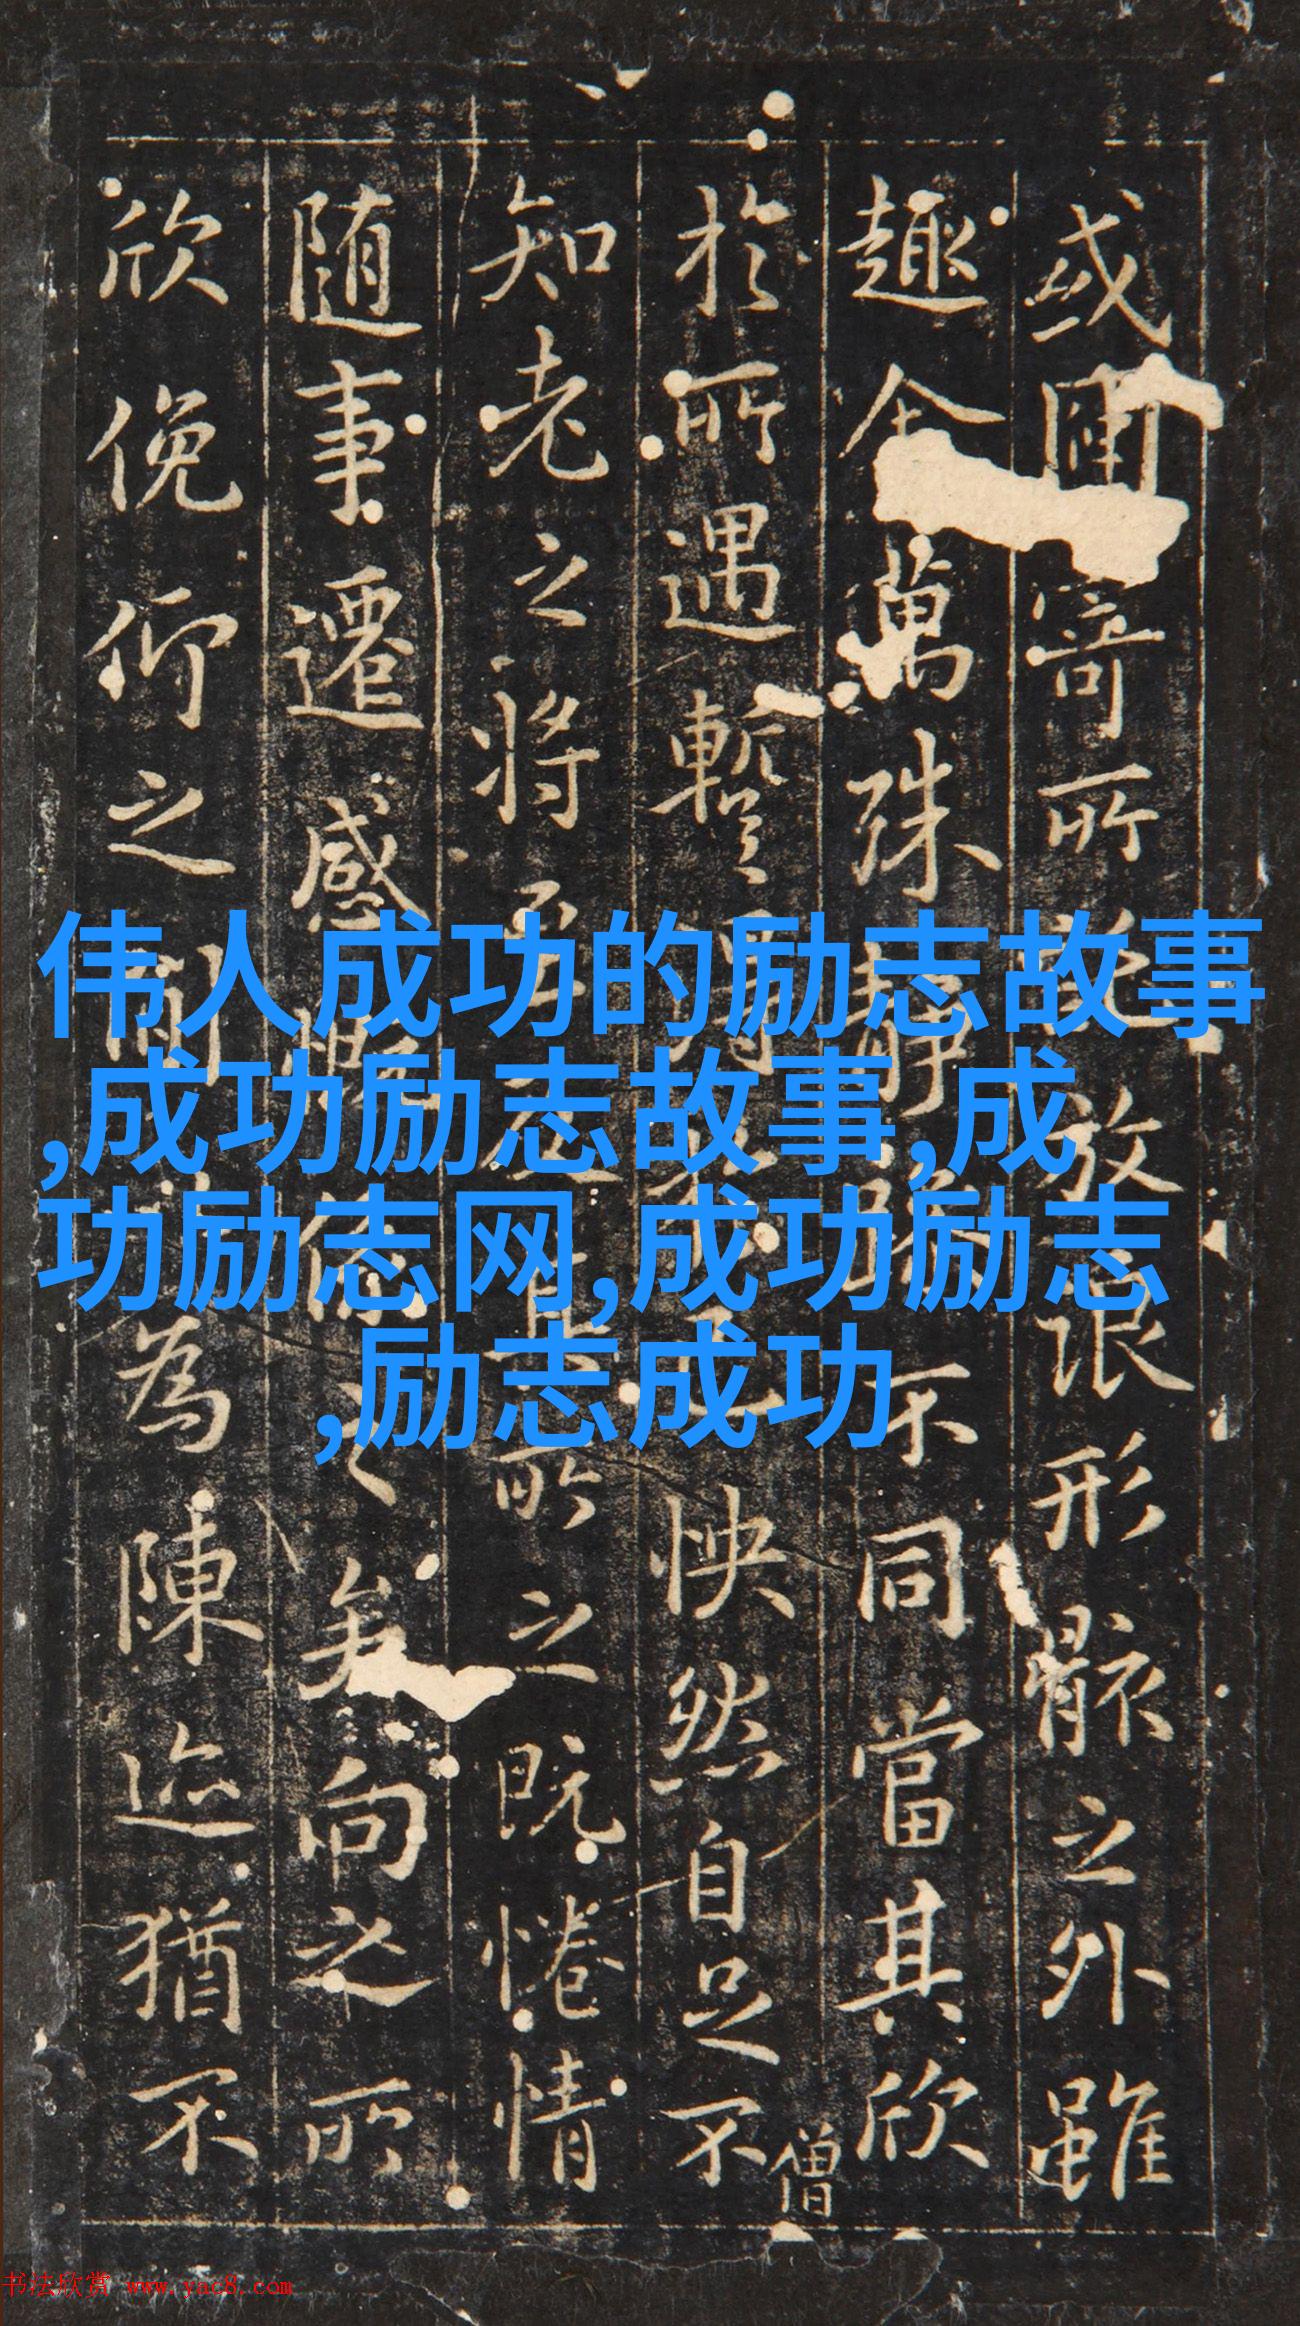 或因寄所放浪形骸之外雖
趣舍萬殊静躁不同當其欣
於所遇暫得怏然自足不
僧
知老之將至所之既惓情
随事遷感慨係之矣向之所
欣俛仰之間為陳迹猶不
伟人成功的励志故事
,成功励志故事,成
功励志网,成功励志
,励志成功
书法欣赏 www.yac8.com